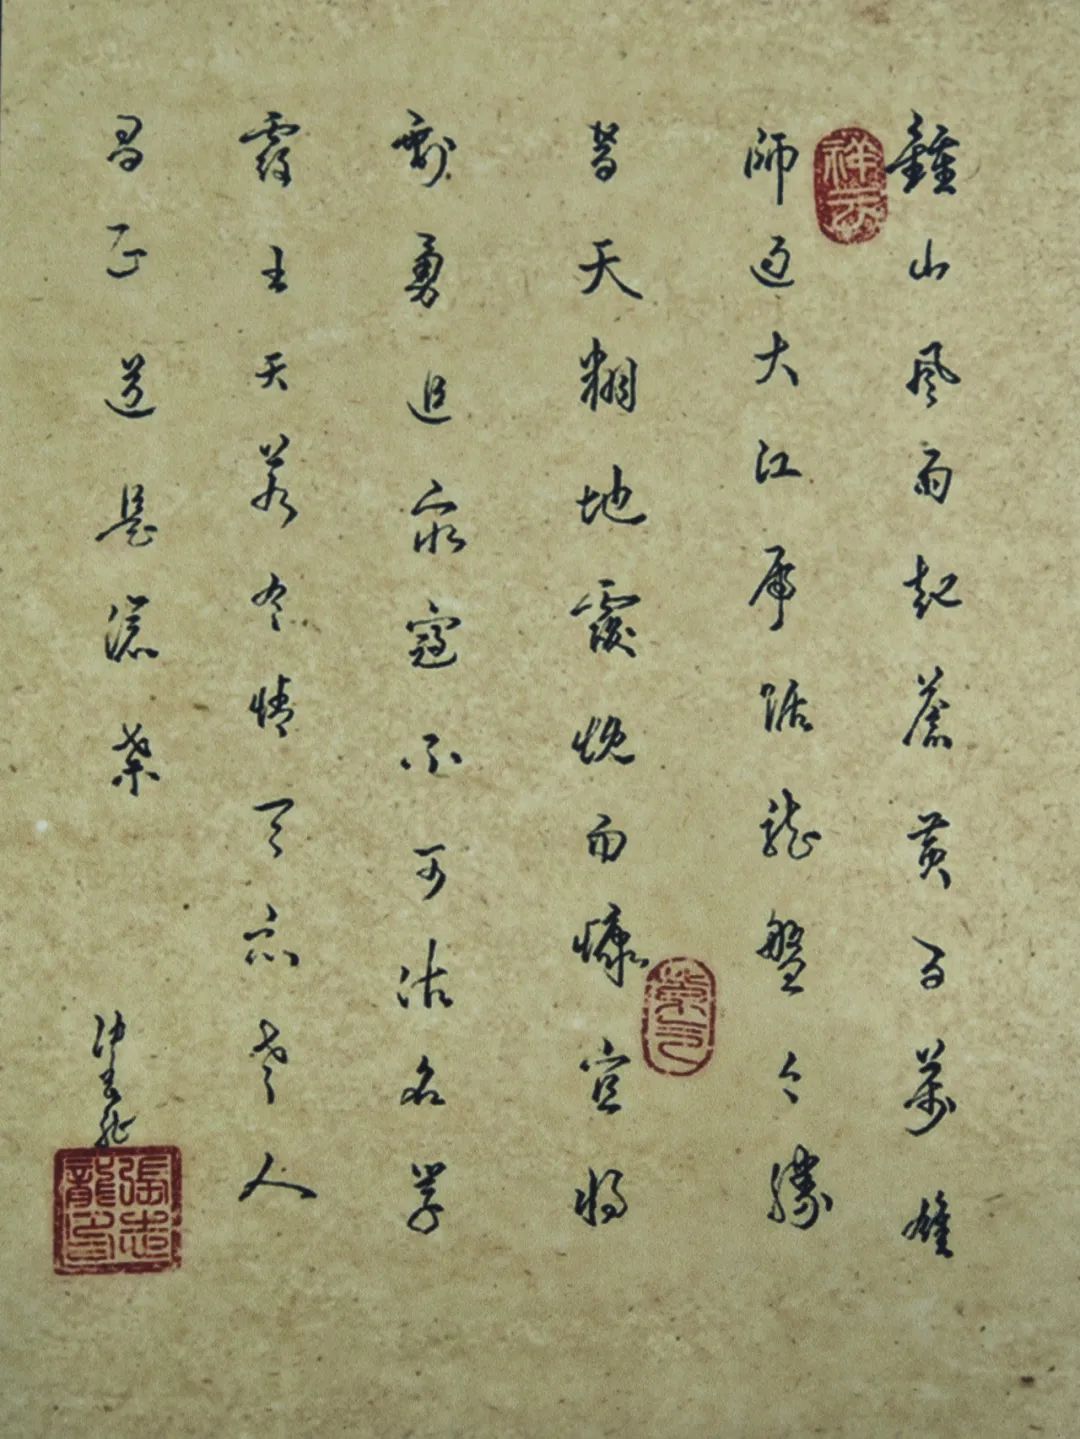 鍾山風雨起蒼黄百萬雄
師過大江虎踞龍盤今勝
昔天翻地覆慨而慷宜將
剩勇追窮寇不可沽名學
霸王天若有情天亦老人
間正道是滄桑
張志龍
祥云
張志龍印